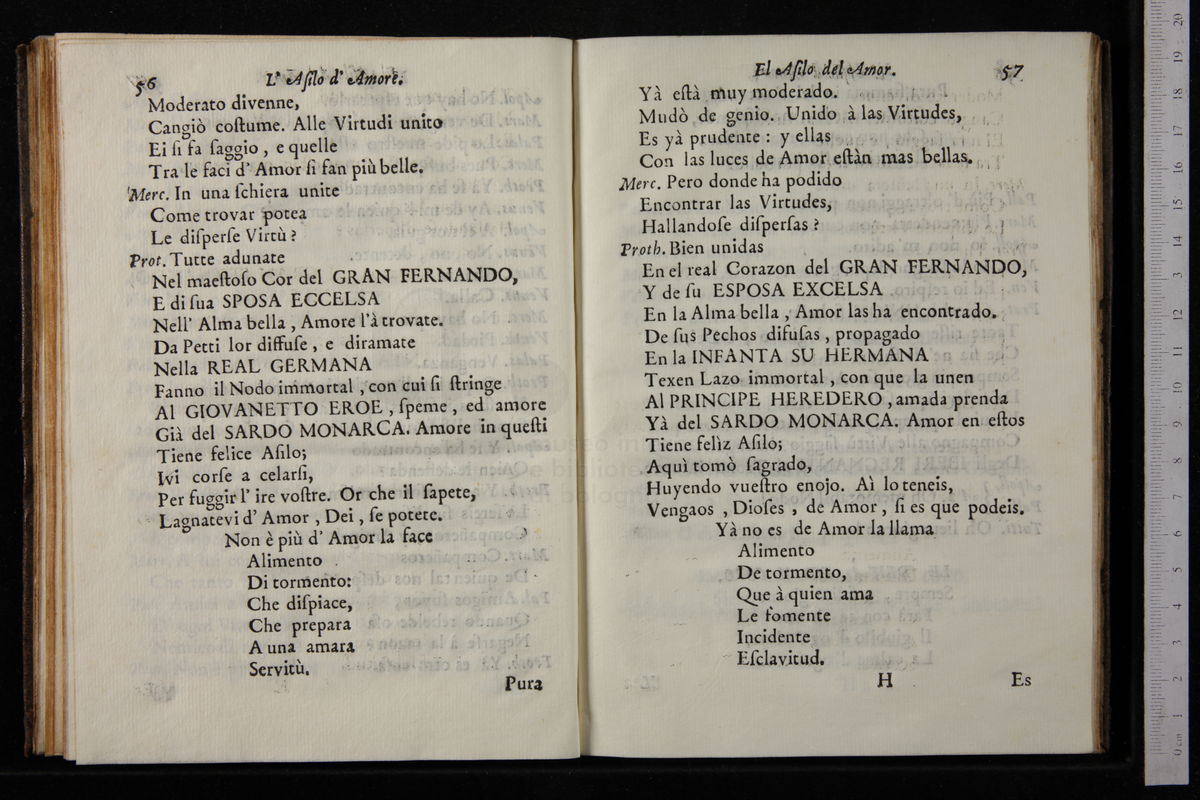 56
L' Aſilo d' Amore.
Moderato divenne,
Cangiò coſtume. Alle Virtudi unito
Ei ſi fa ſaggio , e quelle
Tra le faci d' Amor ſi fan più belle.
Merc. In una ſchiera unite
Come trovar potea
Le diſperſe Virtù ?
Prot. Tutte adunate
Nel maeſtoſo Cor del GRAN FERNANDO,
E di ſua SPOSA ECCELSA
Nell' Alma bella , Amore l'à trovate.
Da Petti lor diffuſe , e diramate
Nella REAL GERMANA
Fanno il Nodo immortal , con cui ſi ſtringe
Al GIOVANETTO EROE , ſpeme , ed amore
Già del SARDO MONARCA. Amore in queſti
Tiene felice Aſilo;
Ivi corſe a celarſi,
Per fuggir l' ire voſtre. Or che il ſapete,
Lagnatevi d' Amor , Dei , ſe potete.
Non è più d' Amor la face
Alimento
Di tormento:
Che diſpiace,
Che prepara
A una amara
Servitù.
Pura
El Aſilo del Amor.
57
Yà eſtà muy moderado.
Mudò de genio. Unido à las Virtudes,
Es yà prudente : y ellas
Con las luces de Amor eſtàn mas bellas.
Merc. Pero donde ha podido
Encontrar las Virtudes,
Hallandoſe diſperſas ?
Proth. Bien unidas
En el real Corazon del GRAN FERNANDO,
Y de ſu ESPOSA EXCELSA
En la Alma bella , Amor las ha encontrado.
De ſus Pechos difuſas , propagado
En la INFANTA SU HERMANA
Texen Lazo immortal , con que la unen
Al PRINCIPE HEREDERO , amada prenda
Yà del SARDO MONARCA. Amor en eſtos
Tiene felìz Aſilo;
Aquì tomò ſagrado,
Huyendo vueſtro enojo. Aì lo teneis,
Vengaos , Dioſes , de Amor , ſi es que podeis.
Yà no es de Amor la llama
Alimento
De tormento,
Que à quien ama
Le fomente
Incidente
Eſclavitud.
H
Es